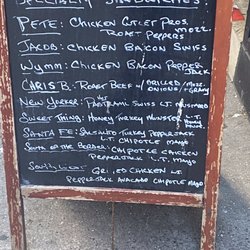 SPECIALTY SANDWICHES
PETE: CHICKEN CUTLET PROS. MOZZ
ROAST PEPPERS
JACOB: CHICKEN BACON SWISS
WYMM: CHICKEN BACON PEPPER
JACK
CHRIS B: ROAST BEEF W/ GRILLED
ONIONS + GRAVY
NEW YORKER: PASTRAMI SWISS LT. MUSTARD
SWEET THING: HONEY TURKEY MUNSTER L.T.
HONEY
SANTA FE: TURKEY PEPPERJACK
LT. CHIPOTLE MAYO
SOUTH OF THE BORDER: CHIPOTLE CHICKEN
PEPPERJACK L.T. MAYO
SOUTHWEST: GRILLED CHICKEN LT
PEPPERJACK AVACADO CHIPOTLE MAYO